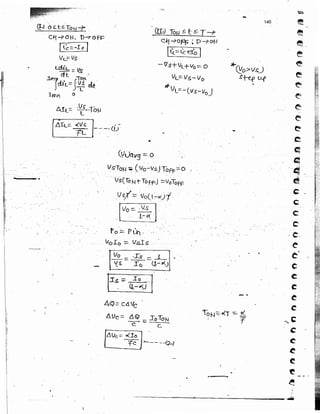 140
(I) 0≤t≤TON →
CH→ON, D→OFF
ic = -Io
VL = Vs
L diL/dt = Vs
∫ diL = ∫ Vs/L dt
Imn 0
ΔIL = Vs/L · TON
ΔIL = αVs/fL ----(i)
(II) TON ≤ t ≤ T →
CH→OFF ; D→ON
-Vs + VL + Vo = 0
VL = Vs - Vo
* VL = -(Vs - Vo)
* (Vo > Vs)
step up
(VL)avg = 0
VsTON = (Vo-Vs) TOFF = 0
Vs(TON + TOFF) = VoTOFF
Vs T = Vo(1-α) T
Vo = Vs/1-α
Po = Pin.
VoIo = VsIs
Vo/Vs = Is/Io = 1/(1-α)
Is = Io/(1-α)
ΔQ = CΔVc
ΔVc = ΔQ/C = IoTON/C
TON = αT = α/f
ΔVc = αIo/fC